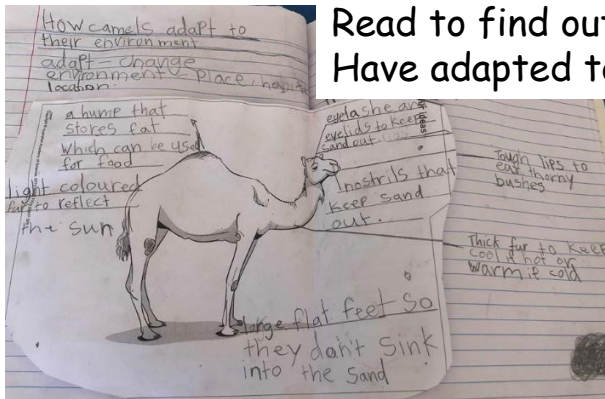 Read to find ou
Have adapted t
How camels adapt to
their environment
adapt - change
environment - Place,
location.
a hump that
stores fat
which can be used
for food
light coloured
fur to reflect
the sun
eyelashe and
eyelids to keep
sand out
nostrils that
keep sand
out.
Tough lips to
eat thorny
bushes
Thick fur to keep
cool if hot or
warm if cold
large flat feet so
they don't sink
into the sand